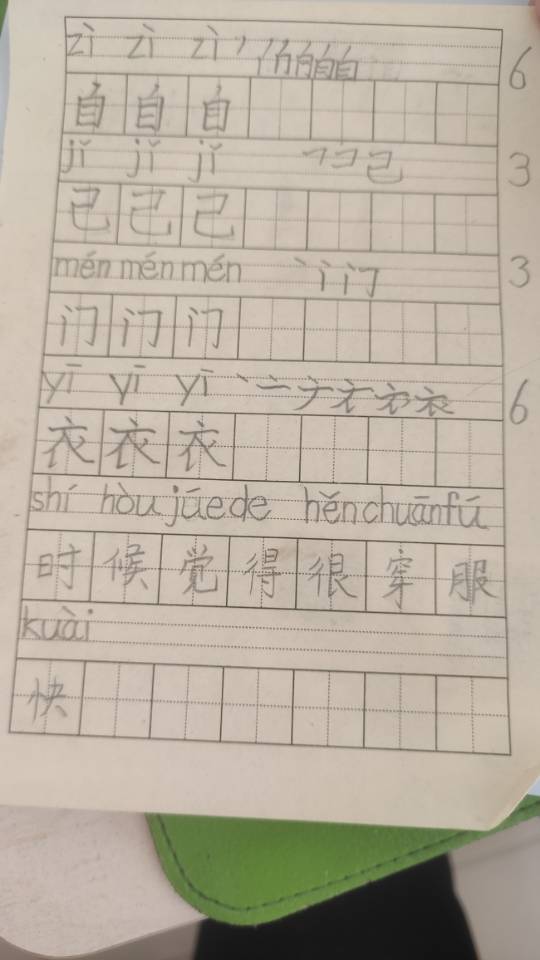 zì zì zì 丿 亻 白 自 自 6
自 自 自
jǐ jǐ jǐ ㇕ コ 己 3
己 己 己
mén mén mén 丶 冫 门 3
门 门 门
yī yī yī 丶 亠 ナ 衣 衣 6
衣 衣 衣
shí hòu júe de hěn chuān fú
时 候 觉 得 很 穿 服
kuài
快